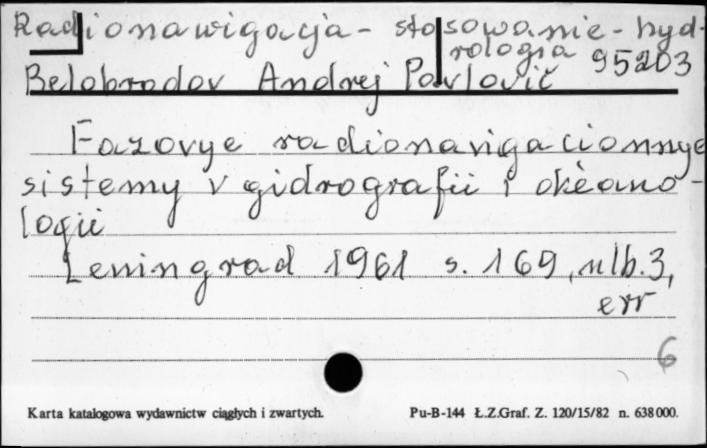 Radionawigacja - stosowanie - hyd-
rologia 95203
Belobrodov Andrej Pavlovič
Fazovye radionavigacionnye
sistemy v gidrografii i okèano-
logii
Leningrad 1961 s. 169,
err
6
Karta katalogowa wydawnictw ciągłych i zwartych. Pu-B-144 Ł.Z.Graf. Z. 120/15/82 n. 638000.